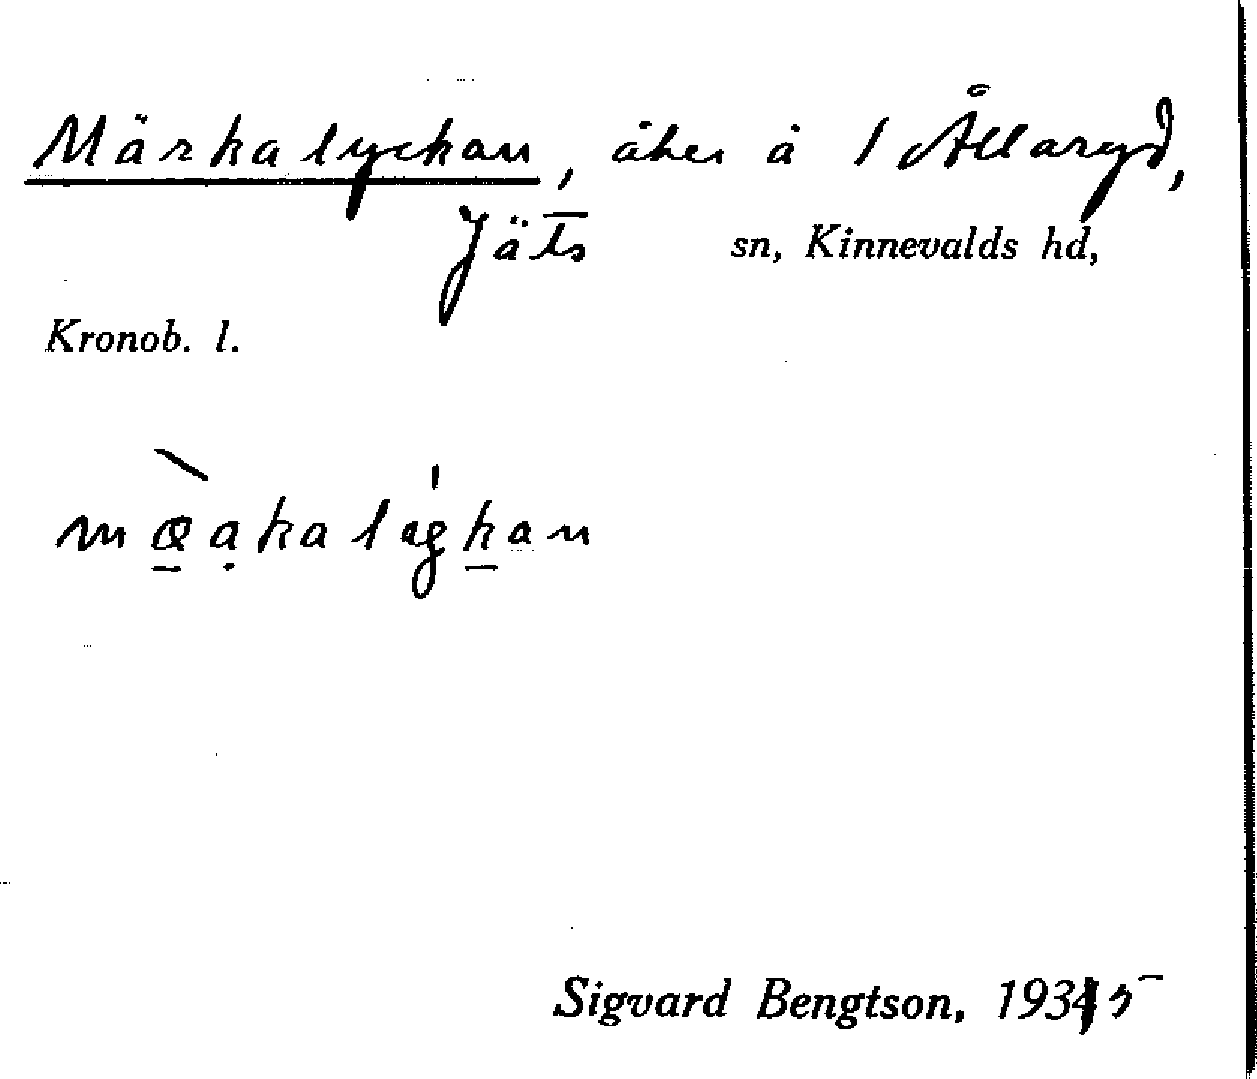 Märkalyckan, åker å 1 Ållaryd,
Jäts sn, Kinnevalds hd,
Kronob. l.
Sigvard Bengtson, 1935